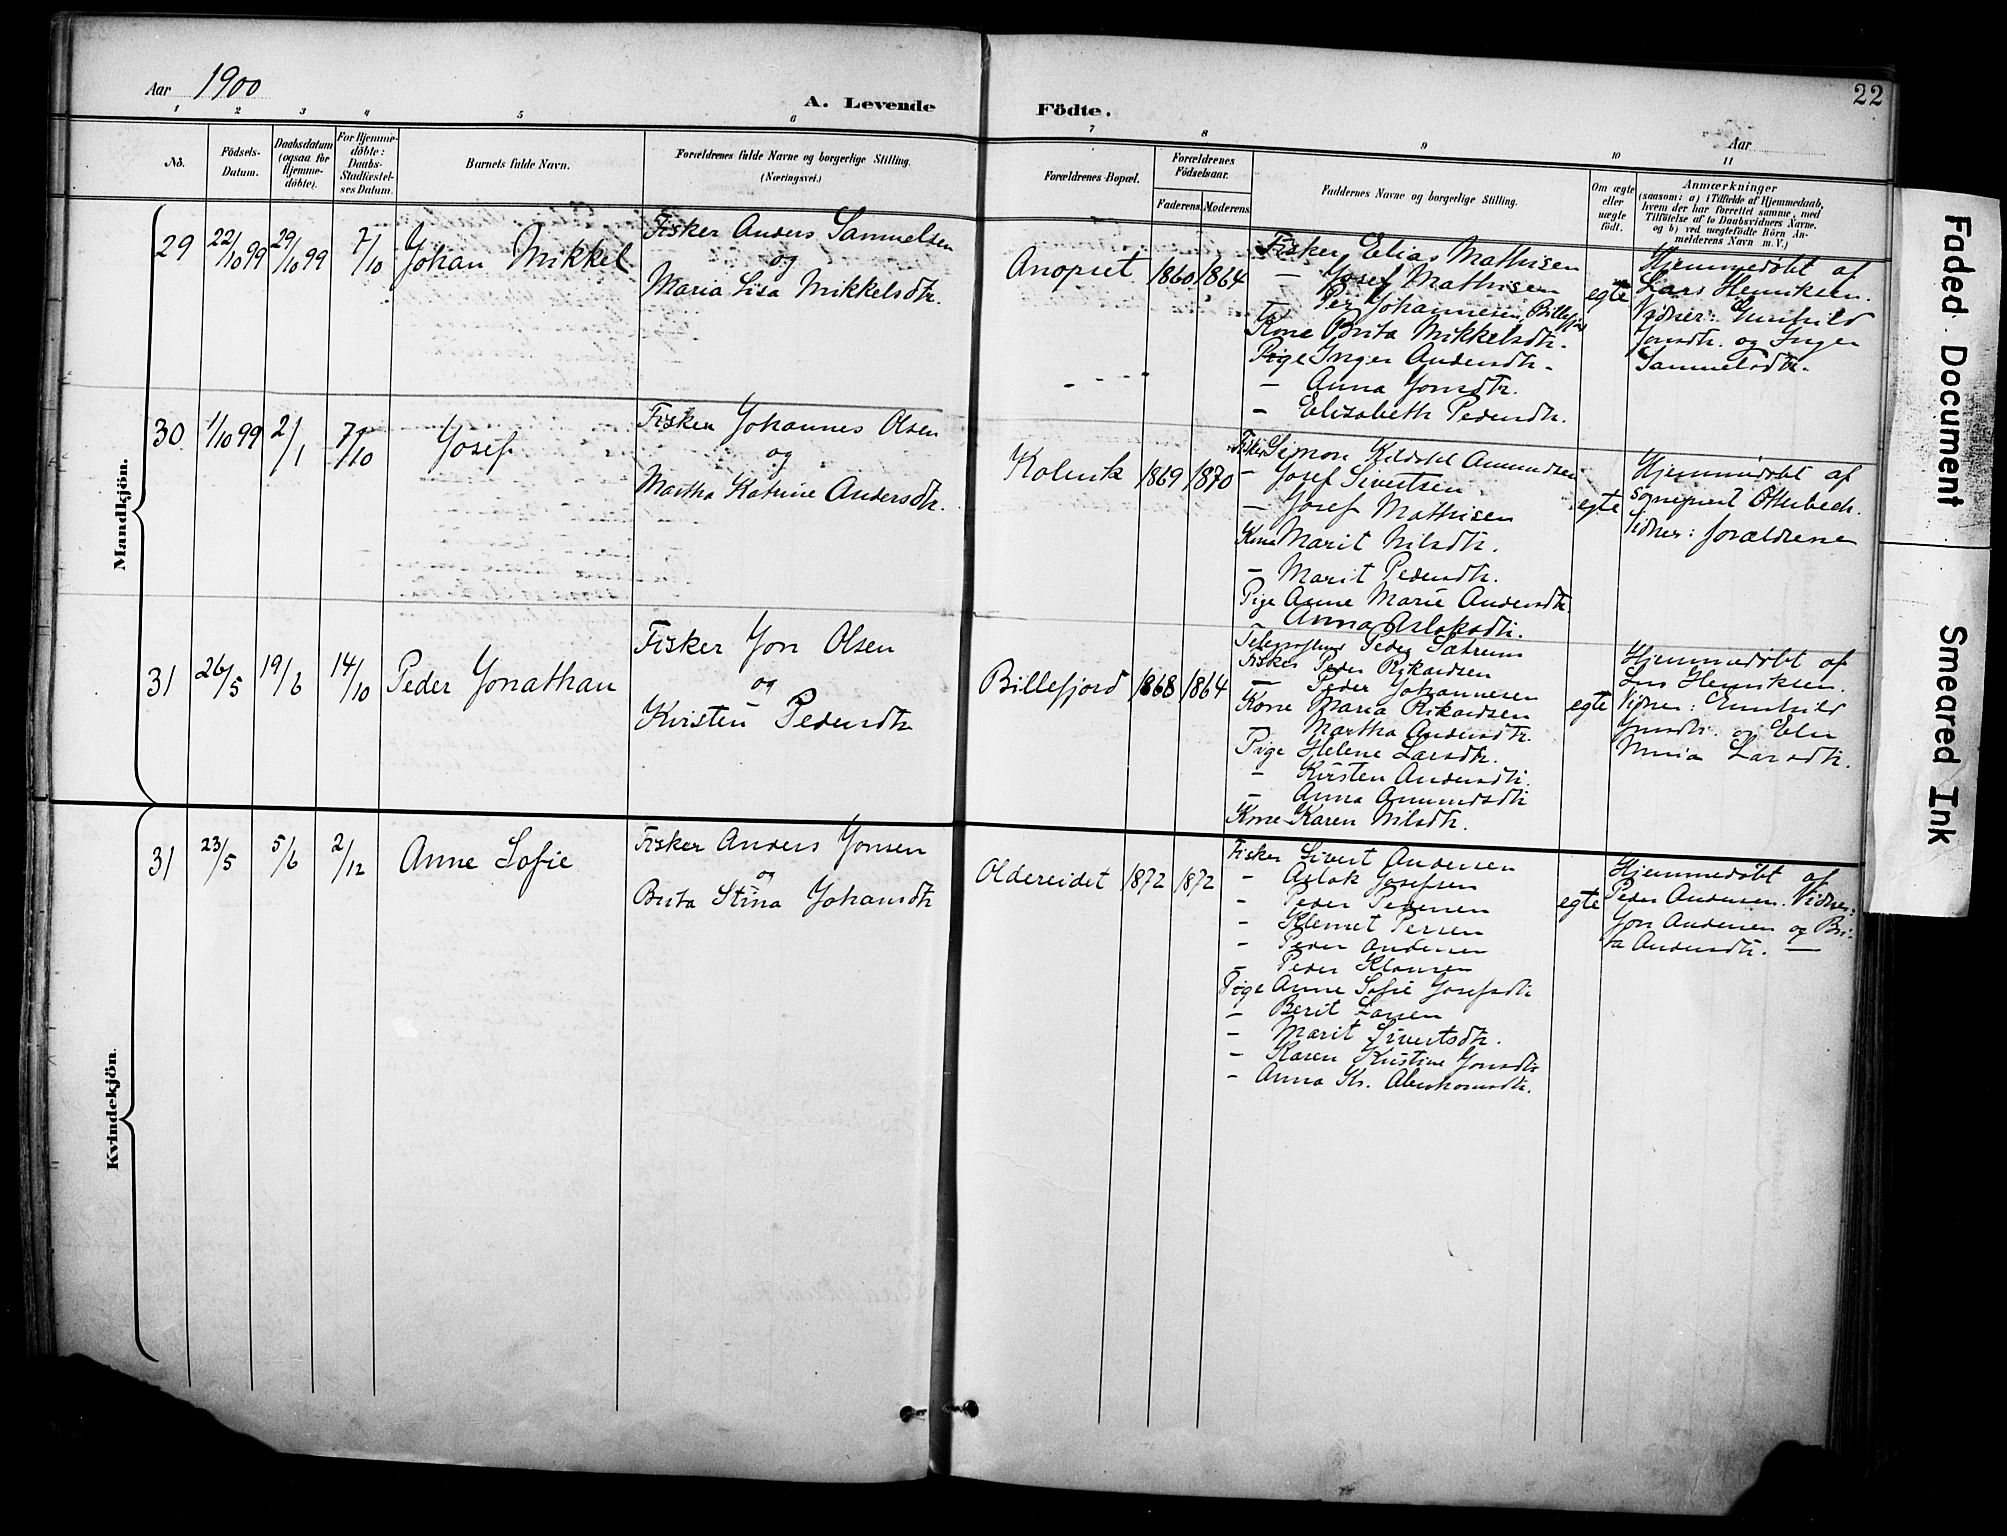 Aar 1900
A. Levende
Födte.
22
Aar
1 2 3 4 5 6 7 8 9 10 11
No.
Födsels-
Datum.
Daabsdatum
(ogsaa for
Hjemme-
döbte).
For Hjemme-
döbte:
Daabs-
Stadfæstel-
ses Datum.
Barnets fulde Navn.
Forældrenes fulde Navne og borgerlige Stilling.
(Næringsvei.)
Forældrenes Bopæl.
Forældrenes
Födselsaar.
Faderens. Moderens.
Faddernes Navne og borgerlige Stilling.
Om ægte
eller
uægte
födt.
Anmærkninger
(saasom: a) i Tilfælde af Hjemmedaab,
hvem der har forrettet samme, med
Tilföielse af to Daabsvidners Navne.
og b) ved uægtefödte Börn An-
melderens Navn m. V.)
Mandkjön.
29
22/10 99
29/10 99
7/10
Johan Mikkel
Fisker Anders Samuelsen
og
Maria Lisa Mikkelsdtr.
Anopset
1860 1864
Fisker Elias Mathisen
– Josef Mathisen
– Per Johannesen, Billefjord
Kone Brita Mikkelsdtr.
Pige Inger Andersdtr.
– Anna Jonsdtr.
– Elizabeth Pedersdtr.
egte
Hjemmedøbt af
Lars Henriksen.
Vidner: Gunhild
Jonsdtr. og Inger
Samuelsdtr.
30
1/10 99
2/1
7/10
Josef
Fisker Johannes Olsen
og
Martha Katrine Andersdtr.
Kolvik
1869 1870
Fisker Simon Kildal Amundsen
– Josef Sivertsen
– Josef Mathisen
Kone Marit Nilsdtr.
– Marit Pedersdtr.
Pige Anne Marie Andersdtr.
Anna Aslaksdtr.
egte
Hjemmedøbt af
sogneprest Otterbech.
Vidner: forældrene
31
26/5
19/6
14/10
Peder Jonathan
Fisker Jon Olsen
og
Kirsten Pedersdtr
Billefjord
1868 1864
Peder Sætrum
Fisker Peder Rikardsen
– Peder Johannesen
Kone Maria Rikardsen
Martha Andersdtr.
Pige Helene Larsdtr.
– Kirsten Andersdtr.
– Anna Amundsdtr
Kone Karen Nilsdtr.
egte
Hjemmedøbt af
Lars Henriksen.
Vidner: Gunhild
Jonsdtr. og Elen
Maria Larsdtr.
Kvindekjön.
31
23/5
5/6
2/12
Anne Sofie
Fisker Anders Jonsen
og
Brita Stina Johansdtr
Oldereidet
1872 1872
Fisker Sivert Andersen
– Aslak Josefsen
– Peder Pedersen
– Klemet Persen
– Peder Andersen
– Peder Klausen
Pige Anne Sofie Josefsdtr
– Berit Larsen
– Marit Sivertsdtr.
– Karen Kristine Jonsdtr
– Anna Kr. Abrahamsdtr.
egte
Hjemmedøbt af
Peder Andersen. Vidner:
Jon Andersen og Bri-
ta Andersdtr. –
Faded Document
Smeared Ink